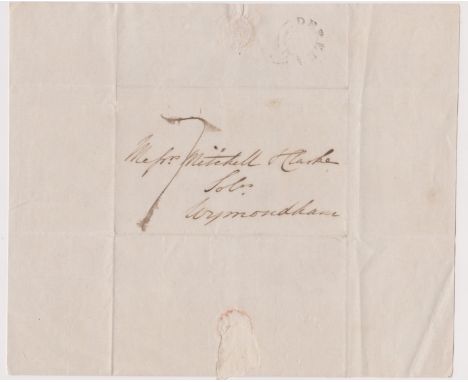 7
Messrs Mitchell & Clarke
Solrs
Wymondham